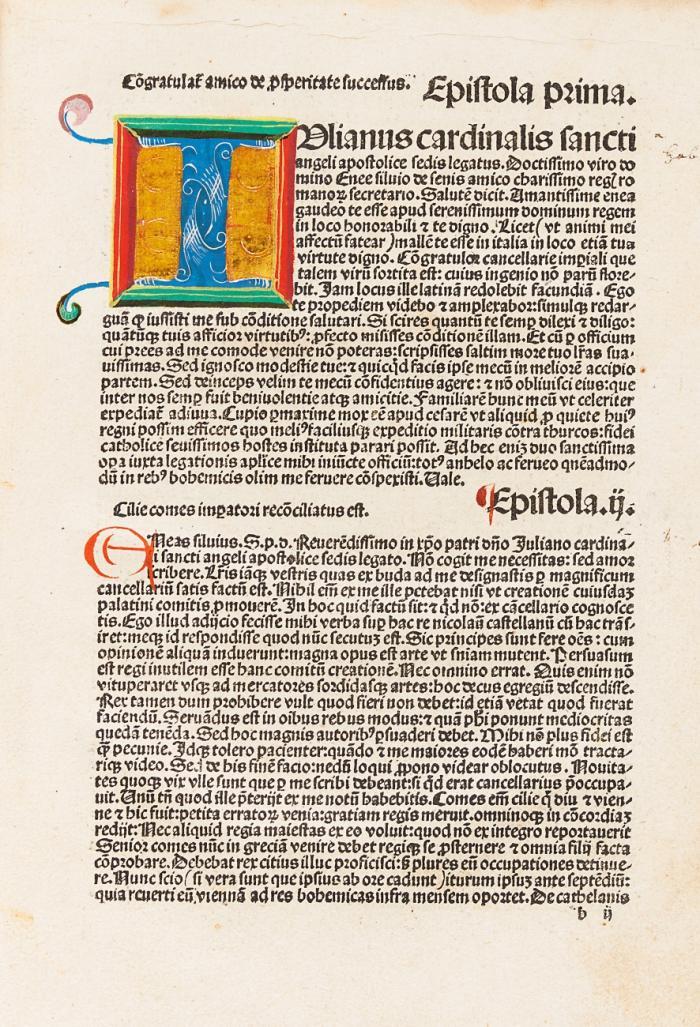 Cõgratulat̃ amico de ꝓsperitate successus. Epistola prima.
Vlianus cardinalis sancti
angeli apostolice sedis legatus. Doctissimo viro do
mino Enee siluio de senis amico charissimo reg̃ ro
manoꝝ secretario. Salutē dicit. Amantissime enea
gaudeo te esse apud serenissimum dominum regem
in loco honorabili ⁊ te digno. Licet (vt animi mei
affectū fatear) mallē te esse in italia in loco etiā tua
virtute digno. Cōgratulor cancellarie imꝑiali que
talem virū sortita est: cuius ingenio nō parū flore-
bit. Jam locus ille latinā redolebit facundiā. Ego
te propediem videbo ⁊ amplexabor: simulqꝫ redar-
guā ꝙ iussisti me sub cōditione salutari. Si scires quantū te semꝑ dilexi ⁊ diligo:
quātūqꝫ tuis afficior virtutibꝰ: ꝓfecto misisses cōditionē illam. Et cū ꝑ officium
cui prees ad me comode venire nō poteras: scripsisses saltim more tuo lr̃as sua-
uissimas. Sed ignosco modestie tue: ⁊ quicqd facis ipse mecū in meliorē accipio
partem. Sed deinceps velim te mecū cōfidentius agere: ⁊ nō obliuisci eius: que
inter nos semꝑ fuit beniuolentie atqꝫ amicitie. Familiarē hunc meū vt celeriter
expediat̃ adiuua. Cupio ꝑmaxime mox eē apud cesarē vt aliquid ꝓ quiete huiꝰ
regni possim efficere quo meliꝰ faciliusqꝫ expeditio militaris cōtra thurcos: fidei
catholice seuissimos hostes instituta parari possit. Ad hec enīz duo sanctissima
oꝑa iuxta legationis aplice mihi iniūcte officiū: totꝰ anhelo ac ferueo quēadmo-
dū in rebꝰ bohemicis olim me feruere cōspexisti. Vale.
Epistola .ij.
Cilie comes imꝑatori recōciliatus est.
ENeas siluius. S.p.d. Reuerēdissimo in xp̄o patri dño Juliano cardina-
li sancti angeli apostolice sedis legato. Nō cogit me necessitas: sed amor
scribere. Lr̃is iāqꝫ vestris quas ex buda ad me designastis ꝑ magnificum
cancellariū satis factū est. Nihil em̄ ex me ille petebat nisi vt creationē cuiusdaꝫ
palatini comitis ꝓmouerē. In hoc quid factū sit: ⁊ qd nō: ex cācellario cognosce
tis. Ego illud adijcio fecisse mihi verba suꝑ hac re nicolaū castellanū cū hac trās-
iret: meqꝫ id respondisse quod nūc secutuꝫ est. Sic principes sunt fere oēs: cum
opinionē aliquā induerunt: magna opus est arte vt sn̄iam mutent. Persuasum
est regi inutilem esse hanc comitū creationē. Nec omnino errat. Quis enim nō
vituperaret vsqꝫ ad mercatores sordidasqꝫ artes: hoc decus egregiū descendisse.
Rex tamen dum prohibere vult quod fieri non debet: id etiā vetat quod fuerat
faciendū. Seruādus est in oībus rebus modus: ⁊ quā ph̄i ponunt mediocritas
quedā tenēda. Sed hoc magnis autoribꝰ ꝑsuaderi debet. Mihi nō plus fidei est
ꝙ̄ pecunie. Idqꝫ tolero pacienter: quādo ⁊ me maiores eodē haberi mō tracta-
riqꝫ video. Sed de his finē facio: nedū loqui ꝓpono videar oblocutus. Nouita-
tes quoqꝫ vix vlle sunt que ꝑ me scribi debeant: si qd erat cancellarius p̄occupa-
uit. Vnū tn̄ quod ille p̄terijt ex me notū habebitis. Comes em̄ cilie ꝙ diu ⁊ vien-
ne ⁊ hic fuit: petita erratoꝝ venia: gratiam regis meruit. omninoqꝫ in cōcordiaꝫ
redijt: Nec aliquid regia maiestas ex eo voluit: quod nō ex integro reportauerit
Senior comes nūc in greciā venire debet regiqꝫ se ꝓsternere ⁊ omnia filij facta
cōprobare. Debebat rex citius illuc proficisci: s̄ plures eū occupationes detinue-
re. Nunc scio (si vera sunt que ipsius ab ore cadunt) iturum ipsuꝫ ante septēdiū:
quia reuerti eū viennā ad res bohemicas infra mensem oportet. De cathelanis
b ij